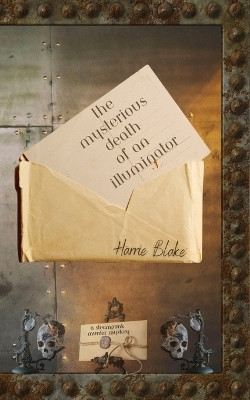 the
mysterious
death
of an
illuminator
Harrie Blake
a steampunk
murder mystery